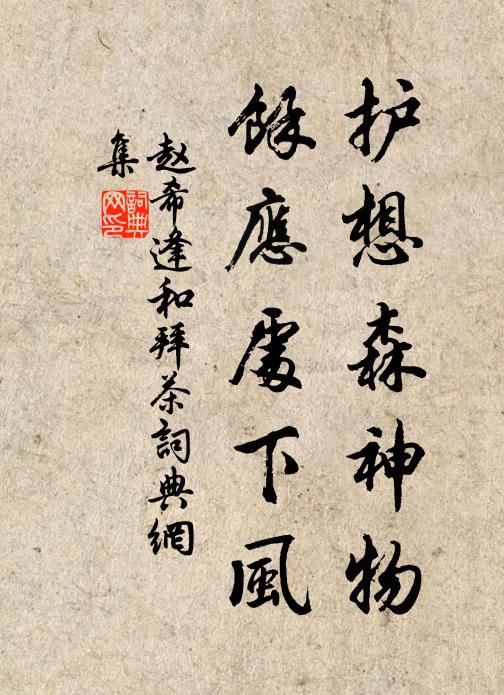 护想森神物
餘應處下風
赵希逢和拜茶詞典網
集
詞典网印